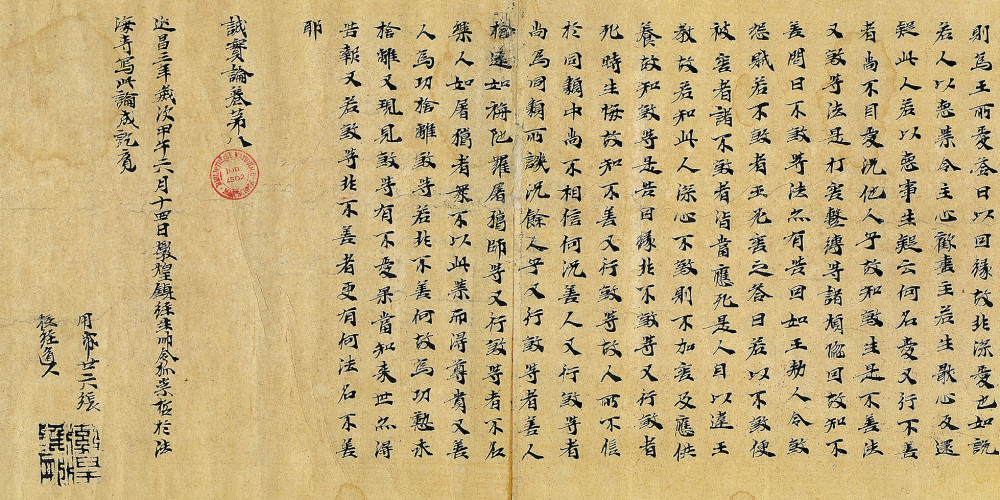 則為王所愛答曰以因緣故非深愛也如說
若人以惡業令主心歡喜主若生歡心反還
疑此人若以惡事生疑云何名愛又行不善
者尚不自愛況他人乎故知煞生是不善法
又煞等法是打害繫縛等諸煩惱因故知不
善問曰不煞等法亦有苦因如王勑人令煞
怨賊若不煞者王必害之答曰若以不煞便
被害者諸不煞者皆當應死是人自以違王
教故若知此人深心不煞則不加害及應供
養故知煞等是苦因緣非不煞等又行煞者
死時生悔故知不善又行煞等故人所不信
於同類中尚不相信何況善人又行煞等者
尚為同類所譏況餘人乎又行煞等者善人
捨遠如栴陀羅屠獦師等又行煞等者不名
樂人如屠獦者業不以此業而得尊貴又善
人為功捨離煞等若非不善何故為功懃求
捨離又現見煞等有不愛果當知來世亦得
苦報又若煞等非不善者更有何法名不善
耶
誠實論卷第八
延昌三年歲次甲午六月十四日敦煌鎮經生師令狐崇哲於法
海寺寫此論成訖竟
用紙廿六張
校經道人